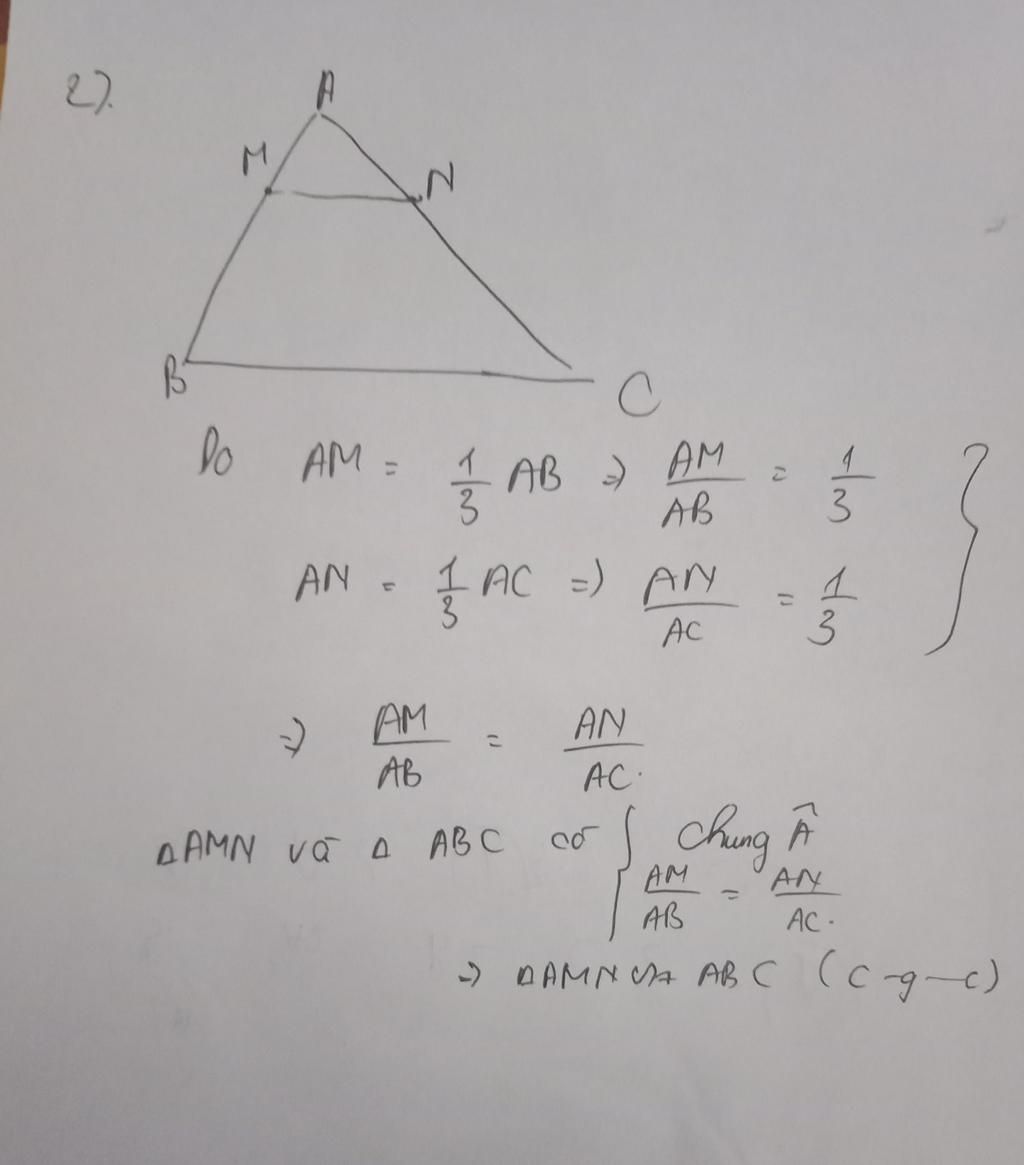 2).
A
M
N
B
C
Do AM = 1/3 AB => AM/AB = 1/3 }
AN = 1/3 AC => AN/AC = 1/3
=> AM/AB = AN/AC.
ΔAMN và Δ ABC có { Chung Â
AM/AB = AN/AC.
=> ΔAMN ∽ ABC (c-g-c)